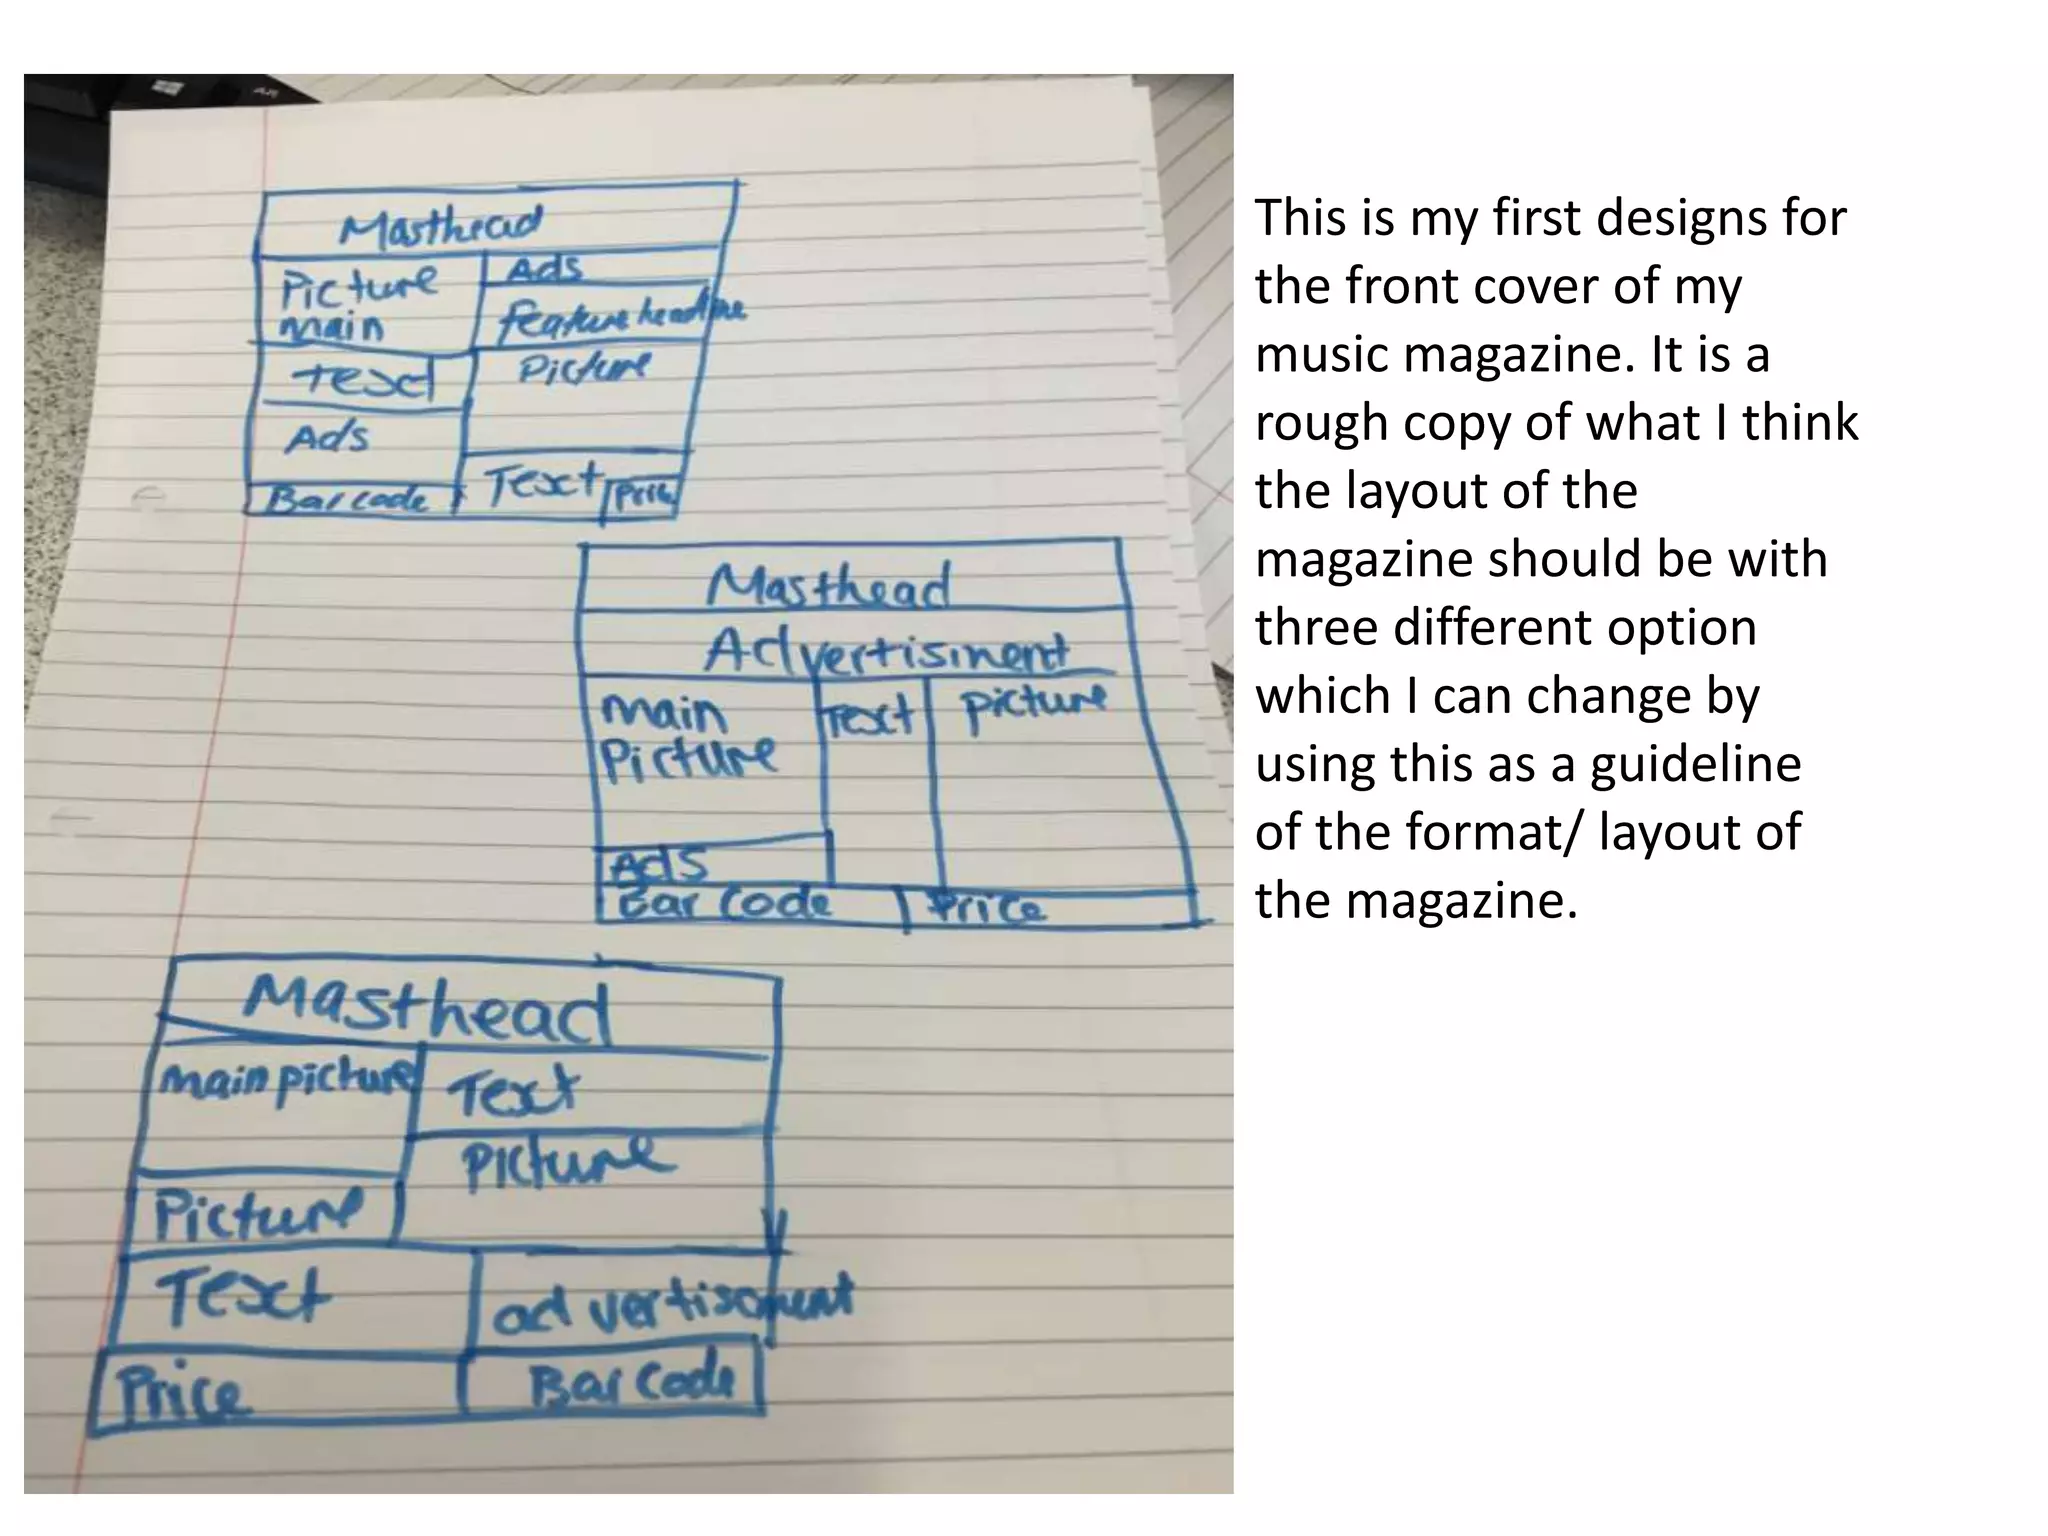 Masthead
Picture
main
Ads
feature headline
Text
Picture
Ads
Bar code
Text
Price
Masthead
Advertisment
main
Picture
Text
picture
Ads
Bar code
Price
Masthead
main picture
Text
Picture
Picture
Text
advertisment
Price
Bar code
This is my first designs for
the front cover of my
music magazine. It is a
rough copy of what I think
the layout of the
magazine should be with
three different option
which I can change by
using this as a guideline
of the format/ layout of
the magazine.